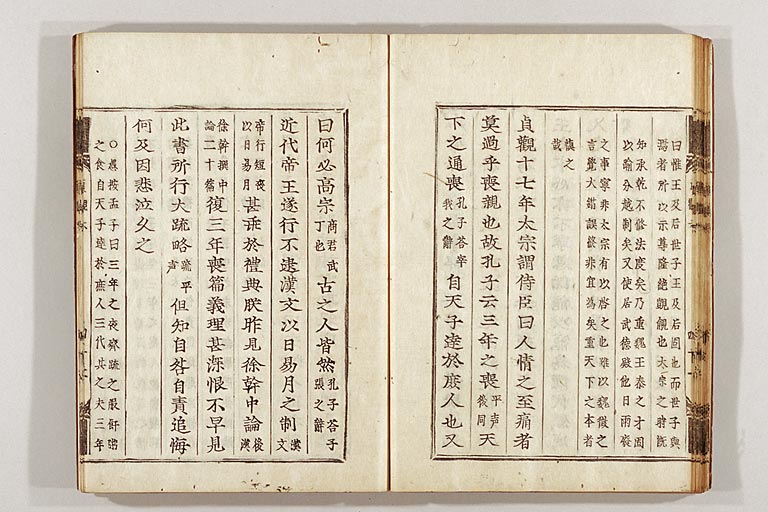 曰惟王及后世子王及后固也而世子與
焉者所以示尊隆絶覬覦也太宗之時既
知承乾不修法度矣乃重魏王泰之才固
以踰分越制矣又使居武德殿他日兩喪
之事寧非太宗有以啓之也雖以魏徵之
言覺大錯誤終非宜爲矣重天下之本者
愼之哉
貞觀十七年太宗謂侍臣曰人情之至痛者
莫過乎喪親也故孔子云三年之喪平声後同天
下之通喪孔子答宰我之辭自天子達於庶人也又
曰何必高宗商君武丁也古之人皆然孔子答子張之辭
近代帝王遂行不逮漢文以日易月之制漢文
帝行短喪以日易月甚乖於禮典朕昨見徐幹中論後漢
徐幹撰中論二十篇復三年喪篇義理甚深恨不早見
此書所行大疏略疏平声但知自咎自責追悔
何及因悲泣久之
○愚按孟子曰三年之喪齊疏之服飦粥
之食自天子達於庶人三代共之夫三年